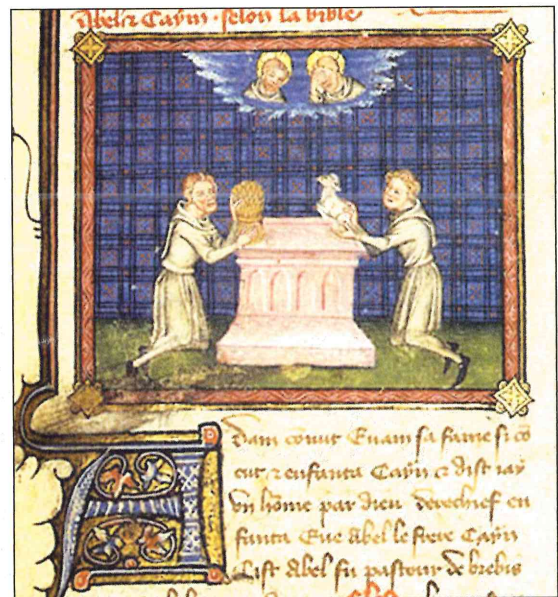 Abel & Cayin · selon la bible
Adam connut Euam sa fame si co
cut & enfanta Cayin & dist iay
vn home par dieu derechief en
fanta Eue Abel le frere Cayin
Cist Abel fu pastour de brebis